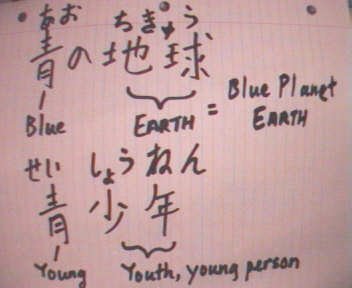 あお ちきゅう
青の地球
Blue EARTH = Blue Planet
EARTH
せい しょうねん
青少年
Young Youth, young person